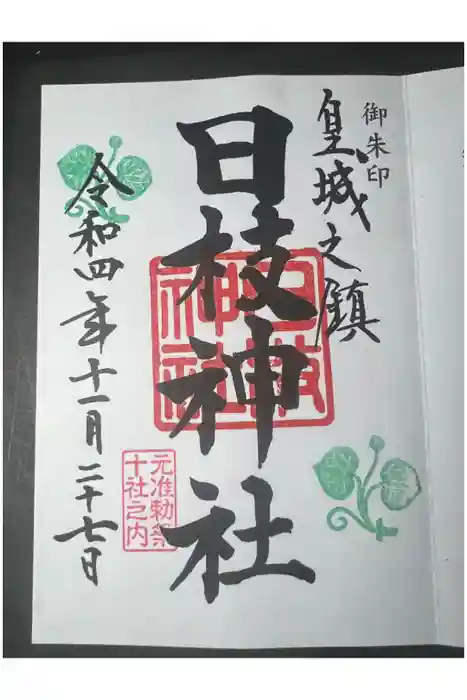 御朱印
皇城之鎮
日枝神社
日枝神社
元准勅祭
十社之内
令和四年十一月二十七日